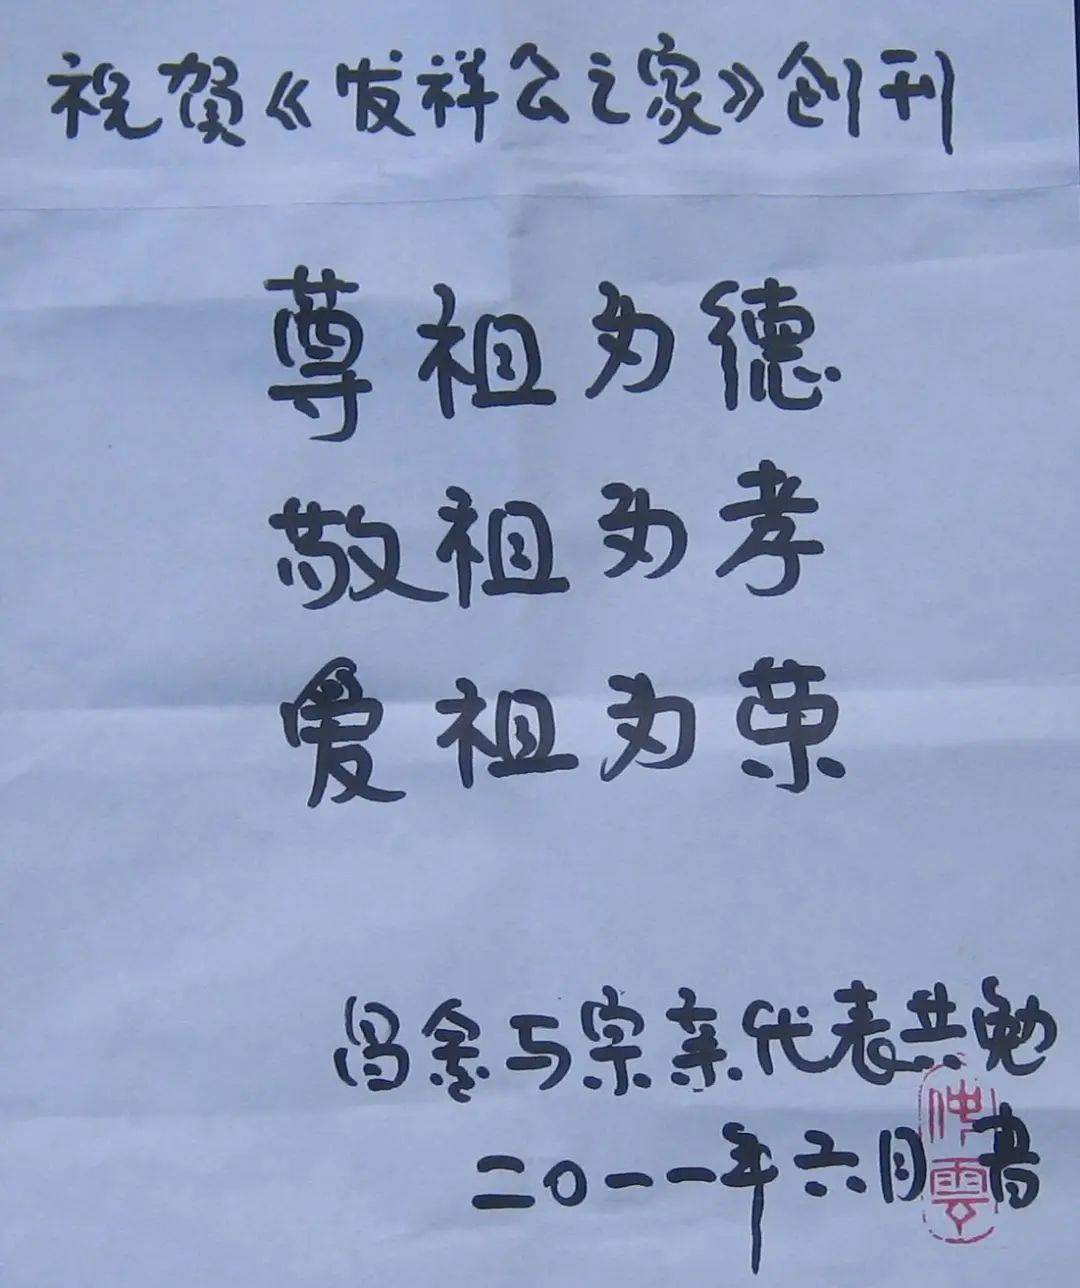 祝贺《发祥公之家》创刊
尊祖为德
敬祖为孝
爱祖为荣
昌金与宗亲代表共勉
二〇一一年六月
仲雲